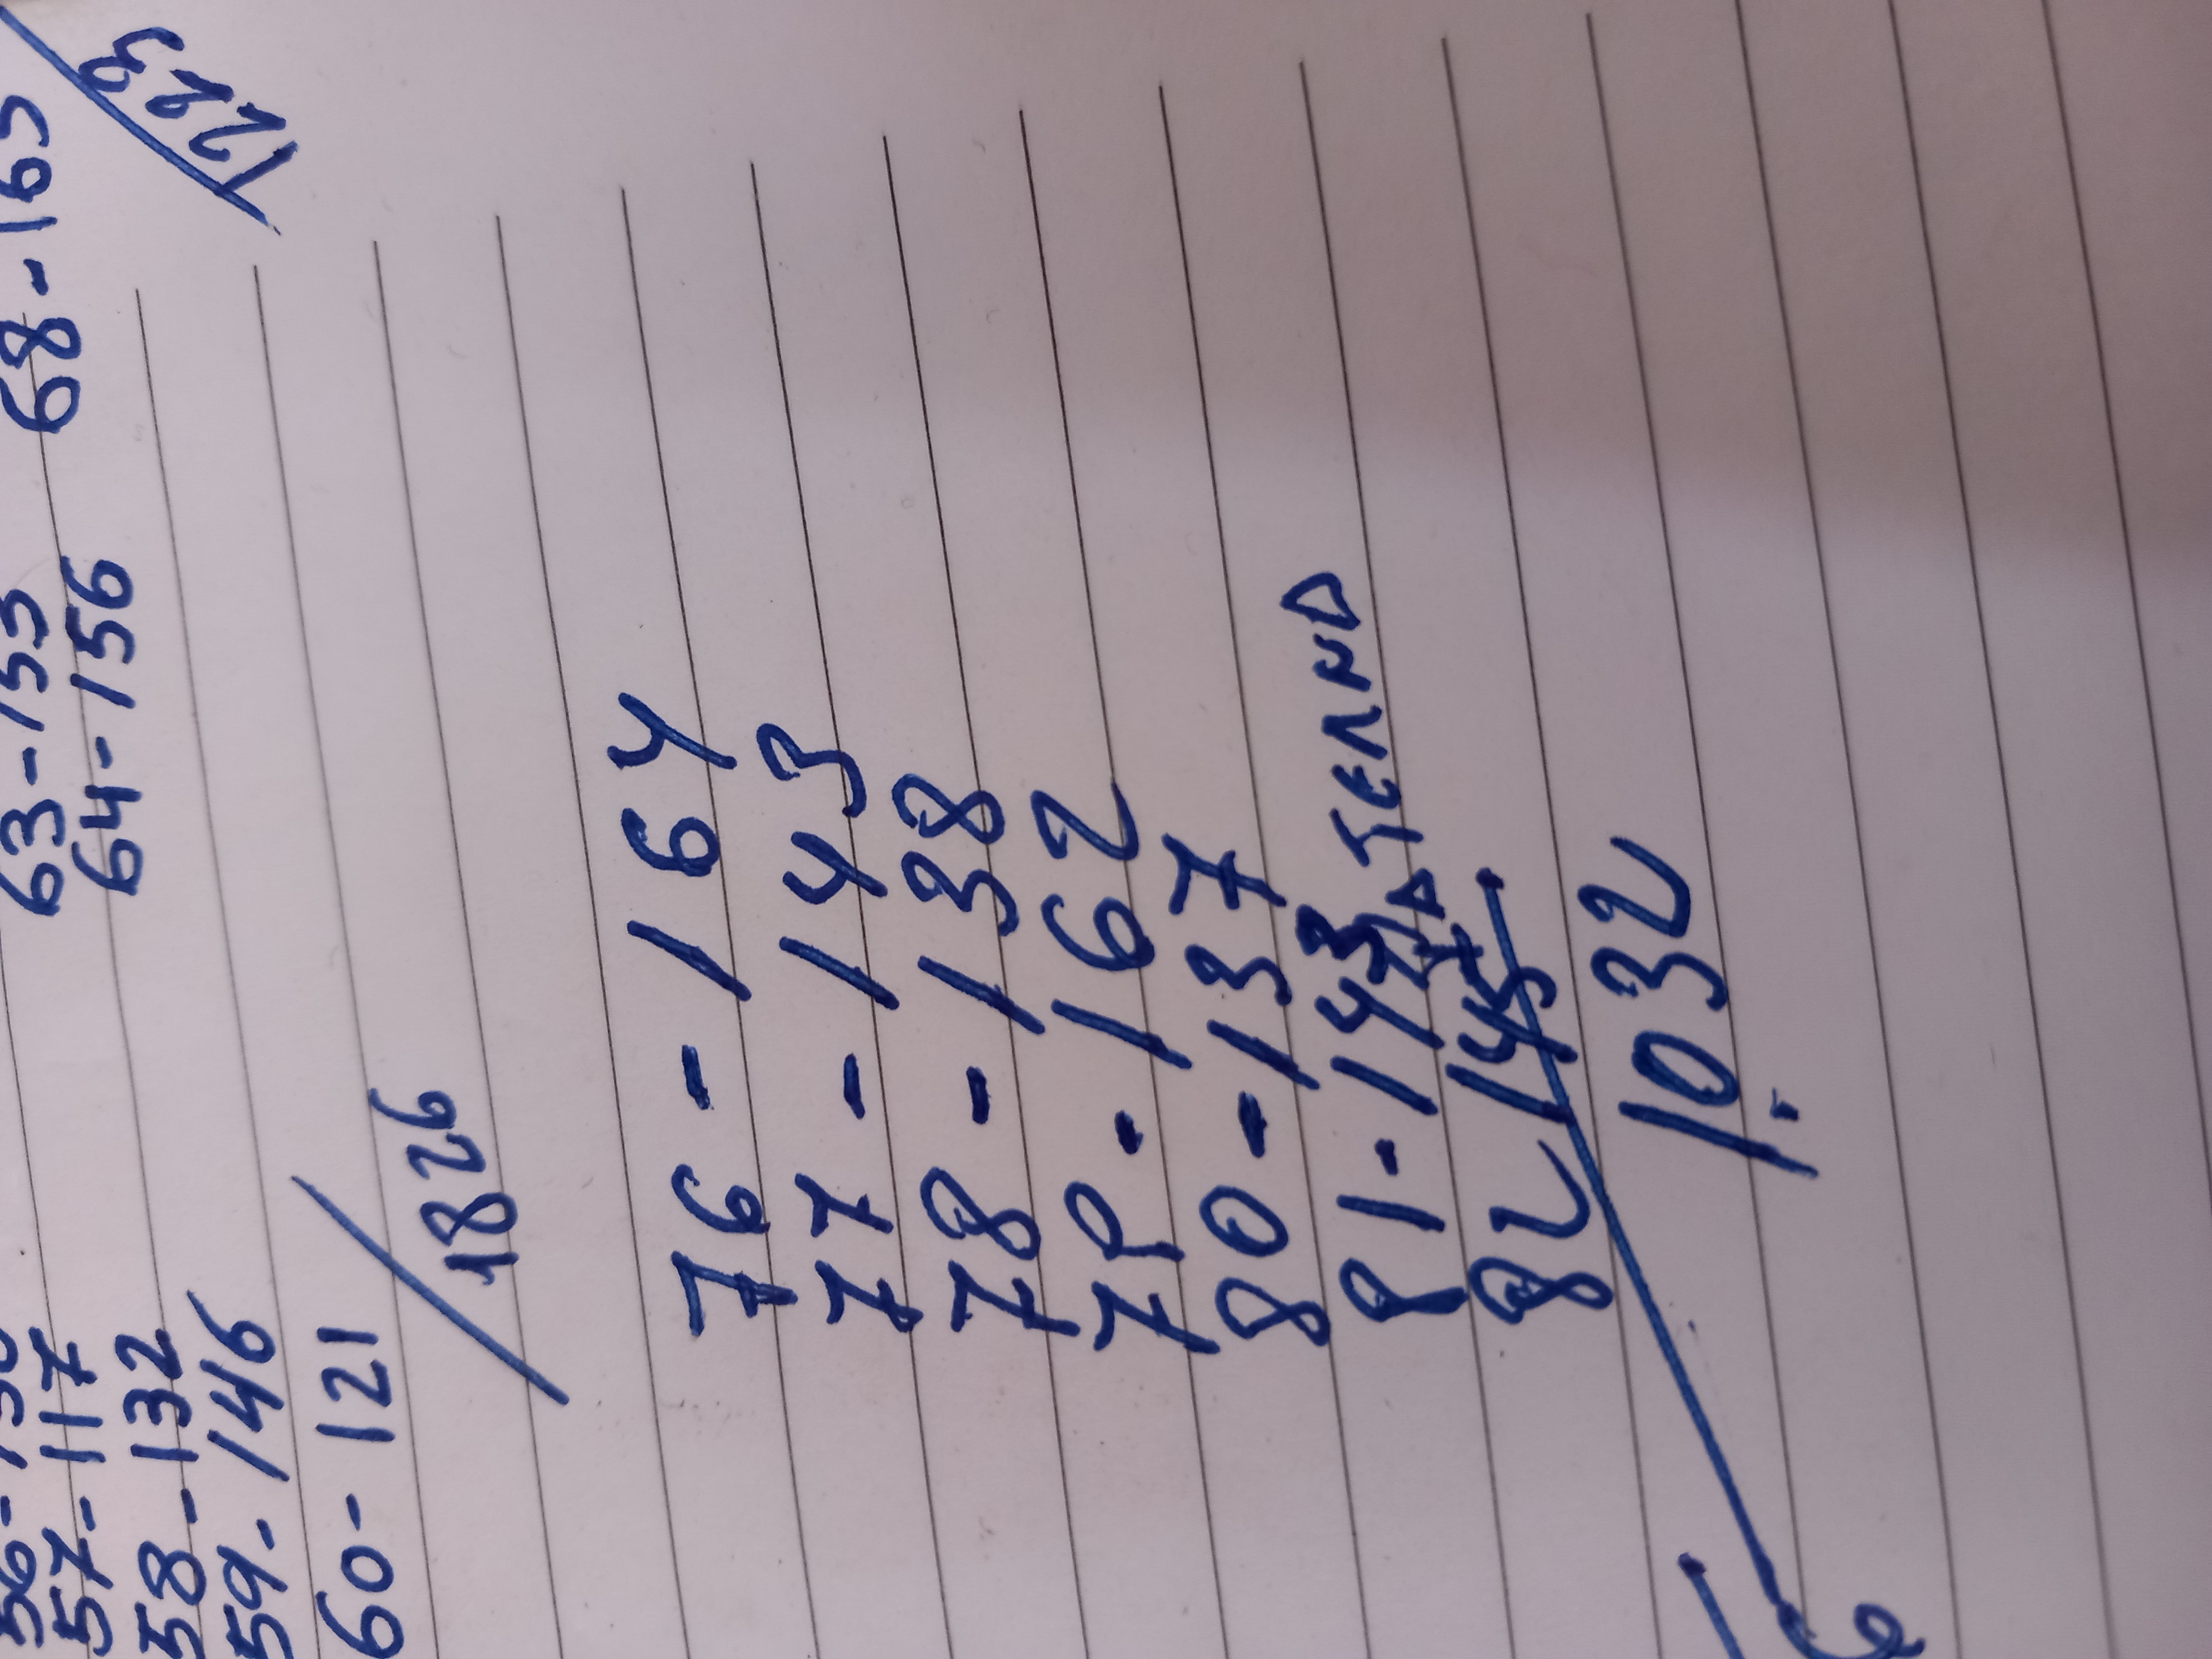 57-117
58-132
59-146
60-121
1826
64-156
68-165
1223
76-164
77-143
78-138
79-162
80-137
81-143
82 145
1032